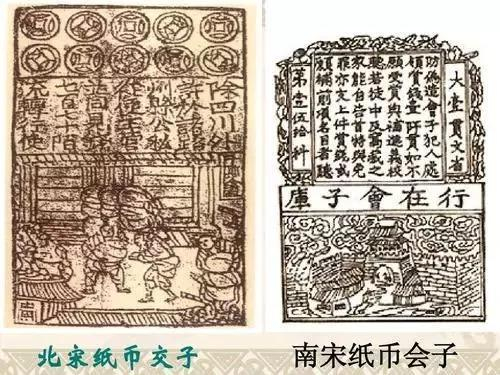 除四川外
許於諸路
州縣公私
從便主管
並同見錢
七百七十陌
流轉行使
北宋纸币交子
大壹貫文省
敕偽造會子犯人處
斬賞錢壹阡貫如不
願受賞與補進義校
尉若徒中及窩藏之
家能自告首特與免
罪亦支上件賞錢或
願補前項名目者聽
第壹伍拾料
行在會子庫
南宋纸币会子